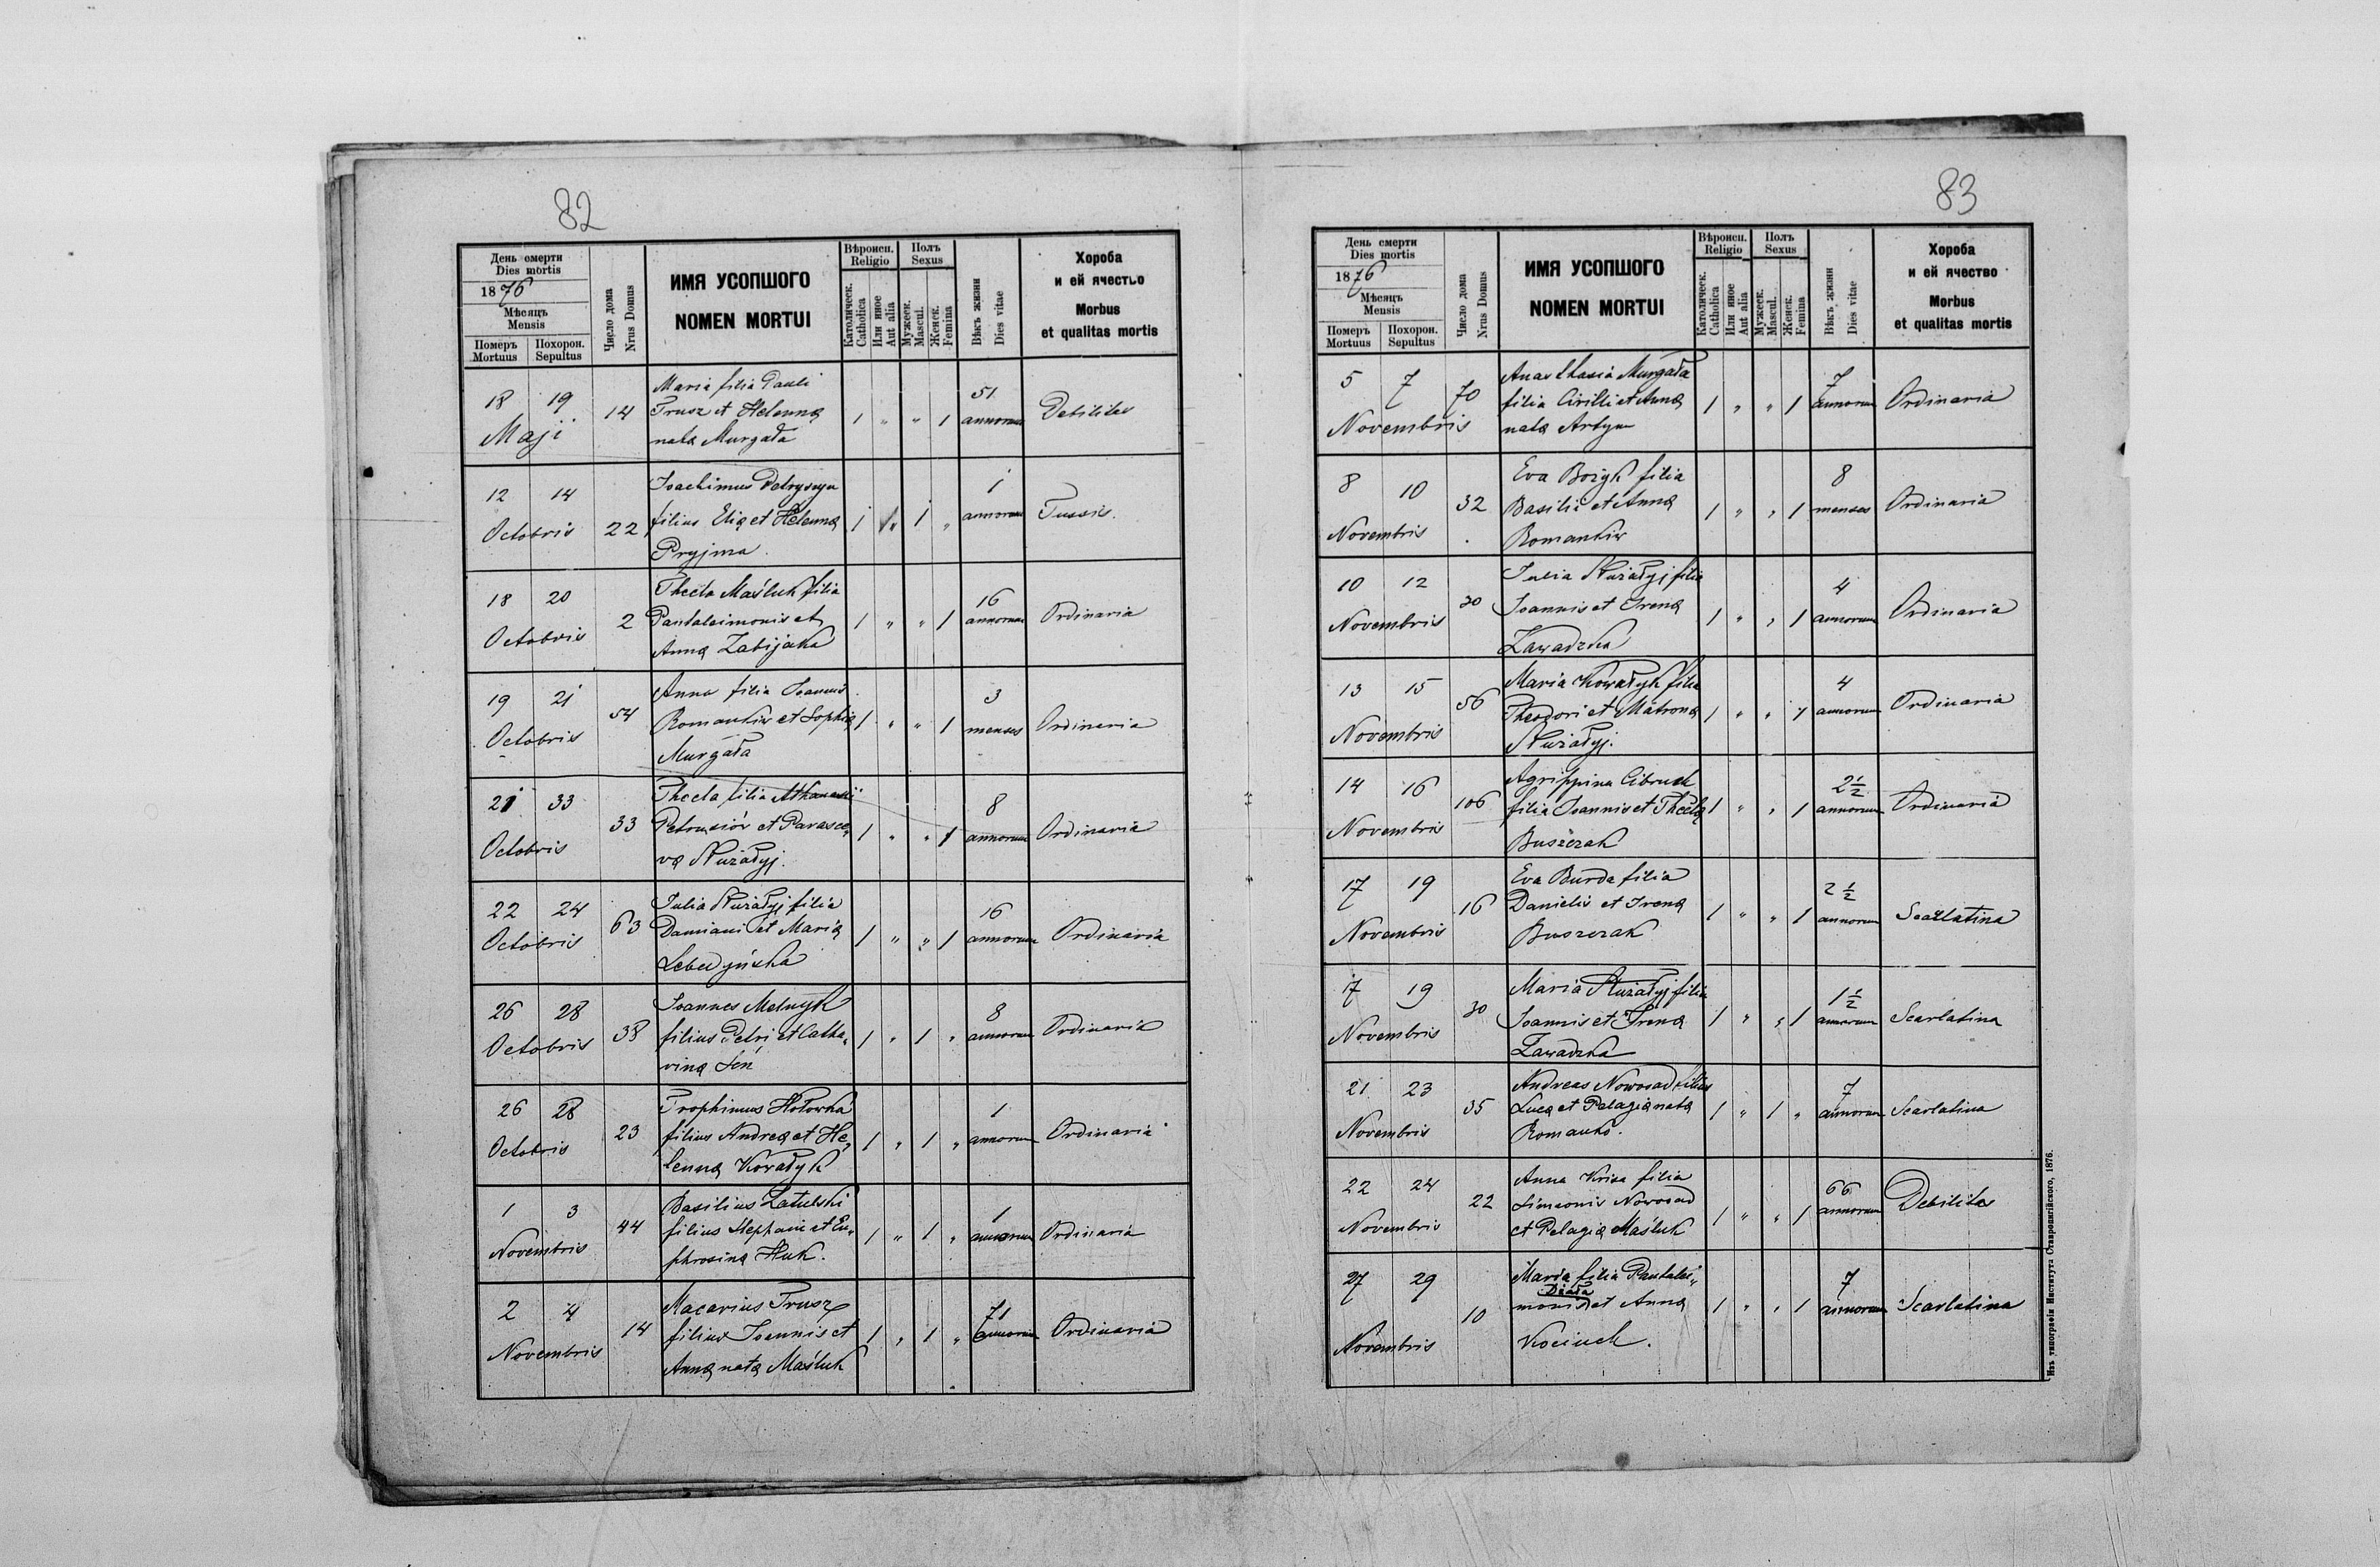 82
День смерти
Dies mortis
1876
Мѣсяцъ
Mensis
Померъ
Mortuus
Похорон.
Sepultus
Число дома
Nrus Domus
ИМЯ УСОПШОГО
NOMEN MORTUI
Вѣроисп.
Religio
Католическ.
Catholica
Или иное
Aut alia
Полъ
Sexus
Мужеск.
Mascul.
Женск.
Femina
Вѣкъ жизни
Dies vitae
Хороба
и ей ячество
Morbus
et qualitas mortis
Maria filia Pauli
18 19 14 Trusz et Helenną 1 " " 1 51 annorum Debilitas
Maji nata Murgała
Joachimus Petryszyn
12 14 22 filius Elią et Helenną 1 " 1 " 1 annorum Tussis.
Octobris Pryjma.
Thecla Maśluk filia
18 20 2 Pantaleimonis et 1 " " 1 16 annorum Ordinaria
Octobris Anną Zabijaka
Anna filia Joannis
19 21 54 Romankiw et Sophią 1 " " 1 3 menses Ordinaria
Octobris Murgała
Thecla filia Athanasii
21 33 33 Petrusiów et Parasce„ 1 " " 1 8 annorum Ordinaria
Octobris vą Stużałyj.
Julia Stużałyj filia
22 24 63 Damiani et Marią 1 " " 1 16 annorum Ordinaria
Octobris
Joannes Melnyk
26 28 38 filius Petri et Catha„ 1 " 1 " 8 annorum Ordinaria
Octobris riną Sen
Trophimus Hołowka
26 28 23 filius Andreą et He„ 1 " 1 " 1 annorum Ordinaria
Octobris lenną Kowałyk
Basilius Latulski
1 3 44 filius Stephani et Eu„ 1 " 1 " 1 annorum Ordinaria
Novembris phrosiną Huk.
Macarius Trusz
2 4 14 filius Joannis et 1 " 1 " 71 annorum Ordinaria
Novembris Anną natą Maśluk
83
День смерти
Dies mortis
1876
Мѣсяцъ
Mensis
Померъ
Mortuus
Похорон.
Sepultus
Число дома
Nrus Domus
ИМЯ УСОПШОГО
NOMEN MORTUI
Вѣроисп.
Religio
Католическ.
Catholica
Или иное
Aut alia
Полъ
Sexus
Мужеск.
Mascul.
Женск.
Femina
Вѣкъ жизни
Dies vitae
Хороба
и ей ячество
Morbus
et qualitas mortis
Anasthasia Murgała
5 7 70 filia Cirilli et Anną 1 " " 1 7 annorum Ordinaria
Novembris nata Artym
Eva Bożyk filia
8 10 32 Basilii et Anną 1 " " 1 8 menses Ordinaria
Novembris Romankiw
Julia Stużałyj filia
10 12 30 Joannis et Ireną 1 " " 1 4 annorum Ordinaria
Novembris Zawadzka
Maria Kowałyk filia
13 15 56 Theodori et Matroną 1 " " 1 4 annorum Ordinaria
Novembris Stużałyj.
Agrippina Cibruch
14 16 106 filia Joannis et Theclą 1 " " 1 2½ annorum Ordinaria
Novembris Buszczak
Eva Burda filia
17 19 16 Danielis et Ireną 1 " " 1 2½ annorum Scarlatina
Novembris Buszczak
Maria Stużałyj filia
17 19 30 Joannis et Ireną 1 " " 1 1½ annorum Scarlatina
Novembris Zawadzka
Andreas Nowosad filius
21 23 35 Lucą et Pelagią natą 1 " 1 " 7 annorum Scarlatina
Novembris Romanko.
Anna Krisa filia
22 24 22 Simeonis Nowosad 1 " " 1 66 annorum Debilitas
Novembris et Pelagią Maśluk
Maria filia Pantalei„
Diała
27 29 10 monis et Anną 1 " " 1 7 annorum Scarlatina
Novembris Kociuch.
Изъ типографіи Института Ставропигійского, 1876.